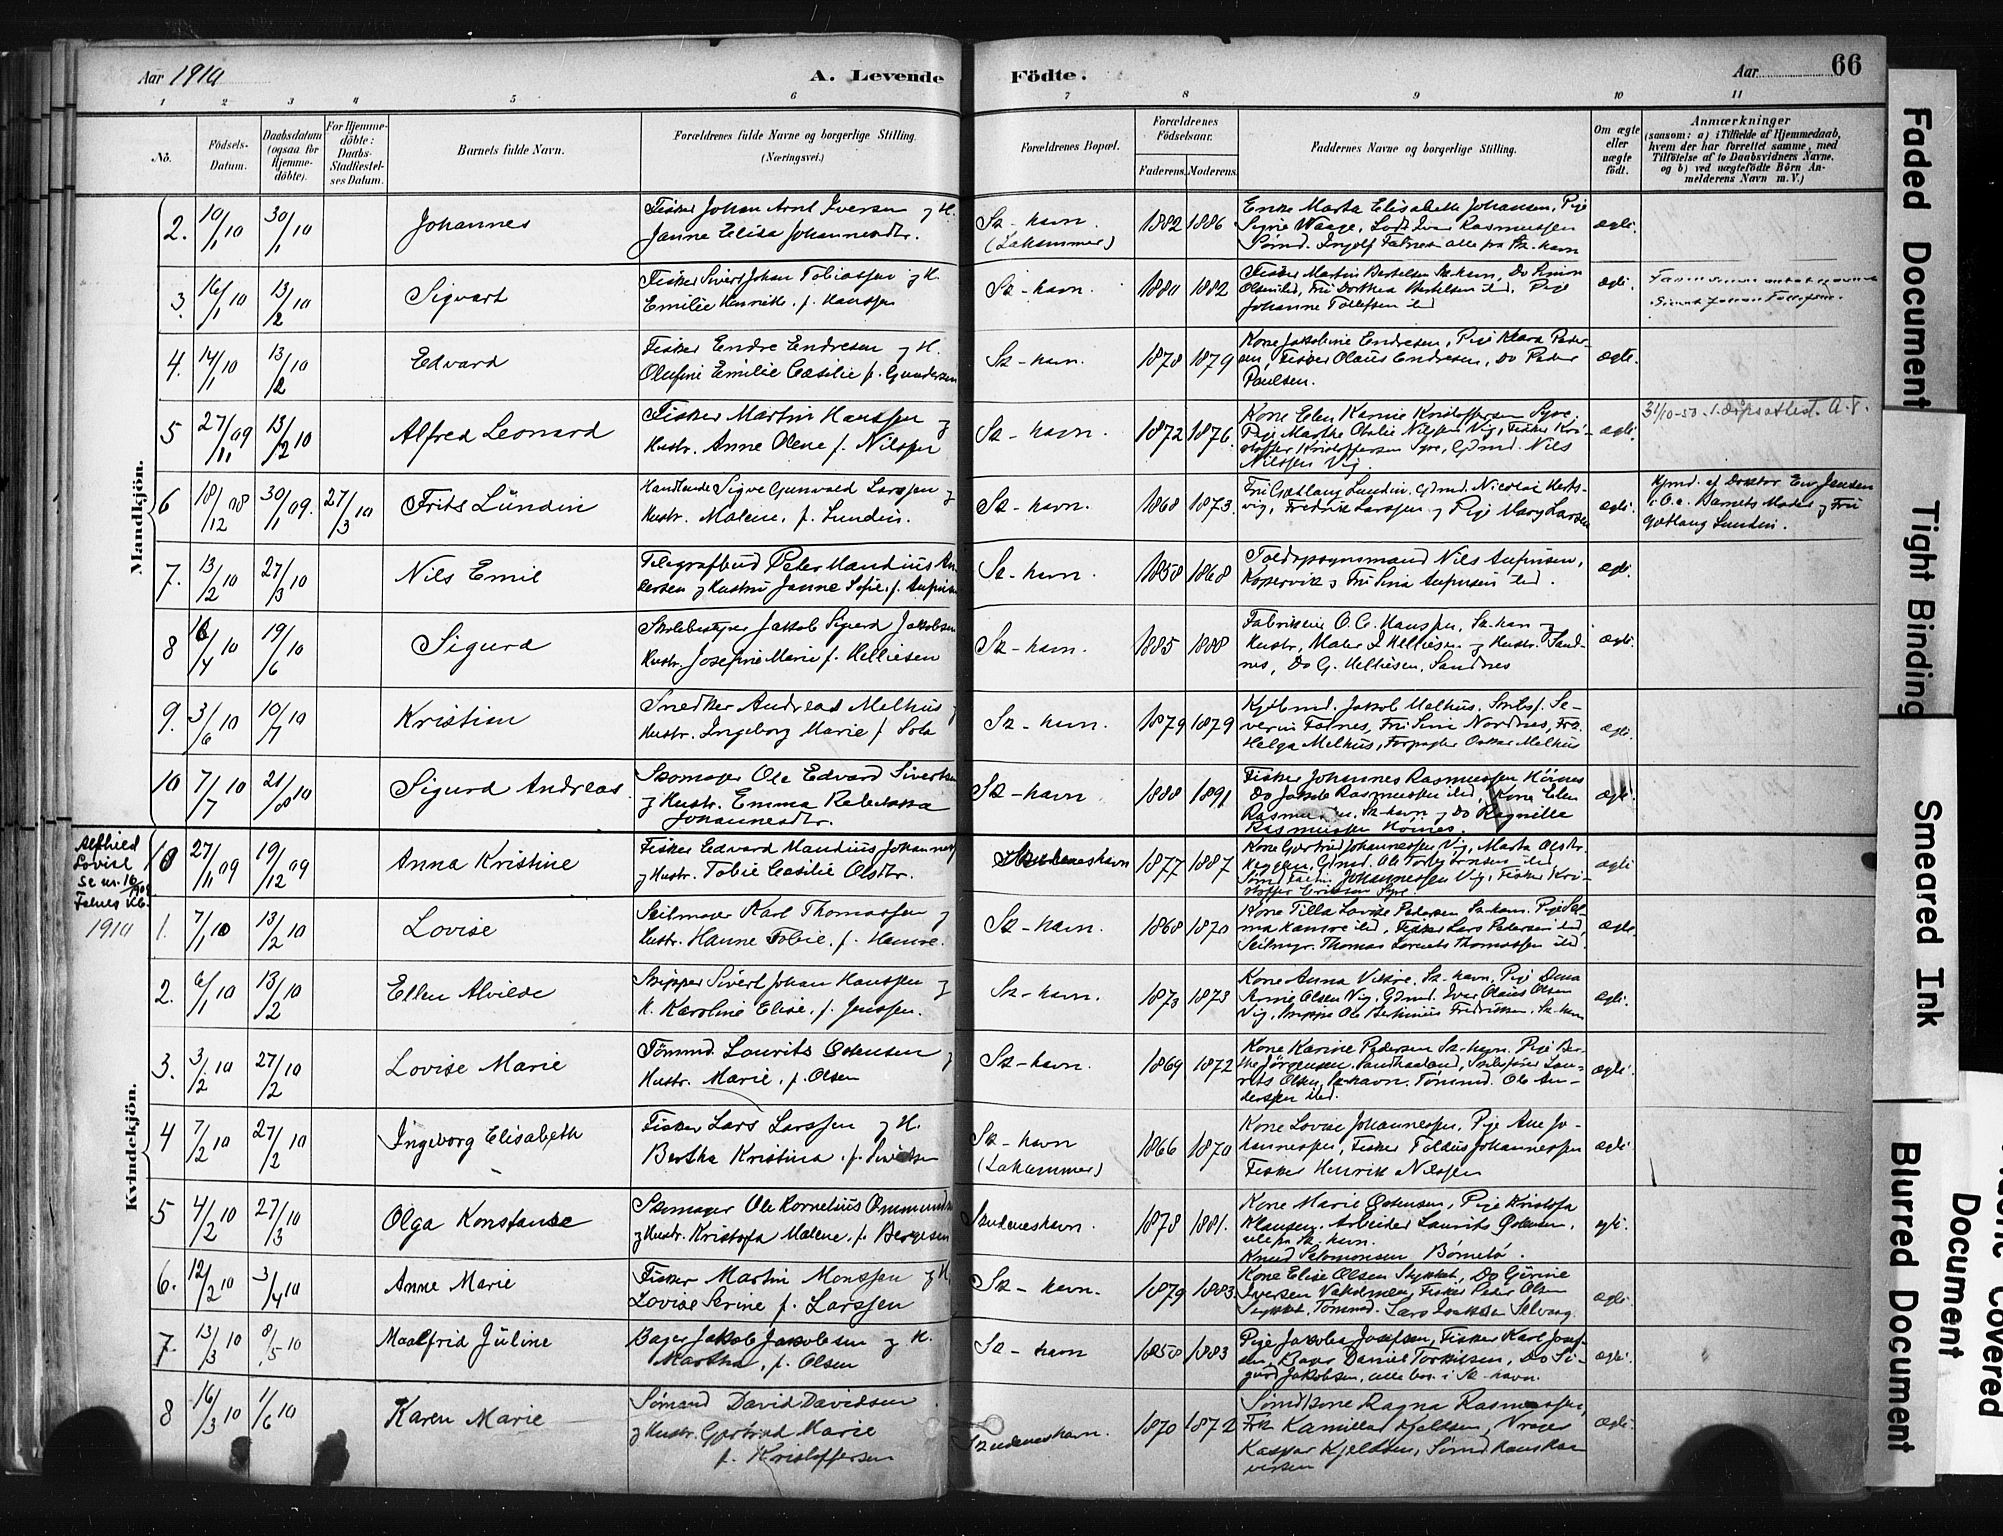 Aar 1910
A. Levende Födte.
Aar 66
1 2 3 4 5 6 7 8 9 10 11
No.
Födsels-Datum.
Daabsdatum (ogsaa for Hjemmedöbte).
For Hjemmedöbte: Daabs-Stadfæstelses Datum.
Barnets fulde Navn.
Forældrenes fulde Navne og borgerlige Stilling.
(Næringsvei.)
Forældrenes Bopæl.
Forældrenes Födselsaar.
Faderens. Moderens.
Faddernes Navne og borgerlige Stilling.
Om ægte eller uægte födt.
Anmærkninger
(saasom: a) i Tilfælde af Hjemmedaab,
hvem der har forrettet samme, med
Tilföielse af to Daabsvidners Navne,
og b) ved uægtefödte Börn An-
melderens Navn m. V.)
Mandkjön.
2. 10/1 10 30/1 10 Johannes
Fisker Johan Arnt Iversen og H.
Janne Elisa Johannesdtr.
Sk-havn 1882 1886
Enke Marta Elisabeth Johansen, Pige
Signe Waage, Lods Ivar Rasmussen
ægte.
3. 16/1 10 13/2 10 Sigvart
Fisker Sivert Johan Tobiassen og H.
Emilie Henriette, f. Hanssen
Sk-havn. 1880 1882
Fisker Martin Bertelsen Sk-havn, Do
Johanne Tollefsen
ægte.
4. 14/1 10 13/2 10 Edvard
Fisker Endre Endresen og H.
Olufine Emilie Cæsilie f. Gundersen
Sk-havn. 1878 1879
Kone Jakobine Endresen, Pige Klara Peder-
sen, Fisker Olaus Endresen, Do Peder
Paulsen.
ægte.
5 27/11 09 13/2 10 Alfred Leonard
Fisker Martin Hanssen og
Hustr. Anne Olene f. Nilssen
Sk-havn. 1872 1876.
Kone Elen Karine Kristoffersen Syre,
Pige Marthe Otalie Nilssen Vig, Fisker Kri-
stoffer Kristoffersen Syre, Gdmd. Nils
Nilssen Vig.
ægte.
31/10-50. 1. dåpsattest. A.F.
6 18/12 08 30/1 09. 27/3 10 Frits Lündin
Handlende Sigve Gunvald Larssen og
Hustr. Malene, f. Lundin.
Sk-havn. 1868 1873.
Fru Gotlaug Lundin, Gdmd. Nicolai
vig, Fredrik Larssen og Pige Mary Larsen
ægte.
Hjmd. af Doktor Ew Jensen
Barnets Moder og Fru
Gotlaug Lundin.
7. 13/2 10 27/3 10 Nils Emil
Telegrafbud Peter Mandius An-
dersen og Hustru Janne Sofie, f.
Sk-havn. 1858 1868
Toldopsynsmand Nils
Kopervik og Fru Sina
ægte.
8 16/4 10 19/6 10 Sigurd
Skolebestyrer Jakob Sigurd Jakobsen
Hustr. Josefine Marie f. Helliesen
Sk-havn. 1885 1888
Fabrikeier O. C. Hanssen, Sk-havn og
Hustr., Maler J Helliesen og Hustr. Sand-
nes, Do G. Helliesen, Sandnes
ægte.
9. 3/6 10 10/7 10 Kristian
Snedker Andreas Melhus og
Hustr. Ingeborg Marie f Sola
Sk-havn. 1879 1879
Kjøbmd. Jakob Melhus, Se-
verin Falnes, Fru Sina Nordnes, Frk.
Helga Melhus, Forpagter Oskar Melhus
ægte.
10 7/7 10 21/8 10 Sigurd Andreas
Skomager Ole Edvard Sivertsen
og Hustr. Emma Rebekka
Johannesdtr.
Sk-havn 1888 1891
Fisker Johannes Rasmussen
Do Jakob Rasmussen ibd, Kone Elen
Rasmussen, Sk-havn og Do Ragnilla
Rasmussen
ægte.
Kvindekjön.
Alfhild
Lovise
se nr. 16
1909
Falnes kb.
10 27/11 09 19/12 09 Anna Kristine
Fisker Edvard Mandius Johannes
og Hustr. Tobie Cæsilie Olsdtr.
Skudeneshavn 1877 1887
Kone Gjertrud Johannessen Vig, Marta Olsdtr.
Johannessen Vig, Fisker Kri-
stoffer
ægte
1910
1. 7/1 10 13/2 10 Lovise
Seilmager Karl Thomassen og
Hustr. Hanne Tobie, f. Hamre.
Sk-havn. 1868 1870
Kone Tilla Lovise Pedersen Sk-havn. Pige Sel-
ma Hamre ibd, Fisker Lars Pedersen ibd,
Seilmgr. Thomas Lornets Thomassen ibd.
ægte
2. 6/1 10 13/2 10 Ellen Alvilde
Skipper Sivert Johan Hanssen og
H. Karoline Elise, f. Jenssen.
Sk-havn. 1873 1873
Kone Anna Vikre, Sk-havn, Pige Dina
Arnie Olsen Vig, Gdmd. Ivar Olaus Olsen
Vig, Skipper Ole Bertinius Fredriksen, Sk-havn
ægte.
3. 3/2 10 27/2 10 Lovise Marie
Tömmd. Laurits Ostensen og
Hustr. Marie, f. Olsen
Sk-havn. 1869 1872
Kone Karine Pedersen Sk-havn. Pige Ber-
the Jørgensen, Sandhaaland, Skibsfører Lau-
rits Olsen, Sk-havn. Tømmd. Ole An-
derssen ibd.
ægte.
4 7/2 10 27/2 10 Ingeborg Elisabeth
Fisker Lars Larssen og H.
Bertha Kristina, f. Sivertsen
Sk-havn 1866 1870
Kone Lovise Johannessen, Pige Ane Jo-
hannessen, Fisker Johannessen
Fisker Henrik Nilssen
ægte.
5 4/2 10 27/3 10 Olga Konstanse
Skomager Ole Kornelius Ommundsen
og Hustr. Kristofa Malene, f. Bergesen
Skudeneshavn. 1878 1881.
Kone Marie Ostensen, Pige Kristofa
Klausen. Arbeider Laurits Ostensen,
alle fra Sk-havn.
Knud Salomonsen Børnelø.
ægte.
6. 12/2 10 3/4 10 Anne Marie
Fisker Martin Monssen og H.
Lovise Serine f. Larssen
Sk-havn. 1879 1883
Kone Elise Olsen Stykket, Do Gurine
Iversen Vaholmen, Fisker Peder Olsen
Stykket, Tømmd. Lars Isaksen
ægte.
7. 13/3 10 8/5 10 Maalfrid Juline
Bager Jakob Jakobsen og H.
Martha, f. Olsen
Sk-havn 1858 1883
Pige Jakobia Josefsen, Fisker Karl Josef-
sen, Bager Daniel Torkilsen, Do Si-
gurd Jakobsen, alle bor i Sk-havn.
ægte.
8 16/3 10 1/6 10 Karen Marie
Sømand David Davidsen
og Hustr. Gjertrud Marie
f. Kristoffersen
Skudeneshavn. 1870 1872
Sømd. kone Ragna Rasmussen,
Frk. Kamilla Kjeldsen, Vrager
Kaspar Kjeldsen, Sømd
ægte.
Faded Document
Tight Binding
Smeared Ink
Blurred Document
Document
Covered